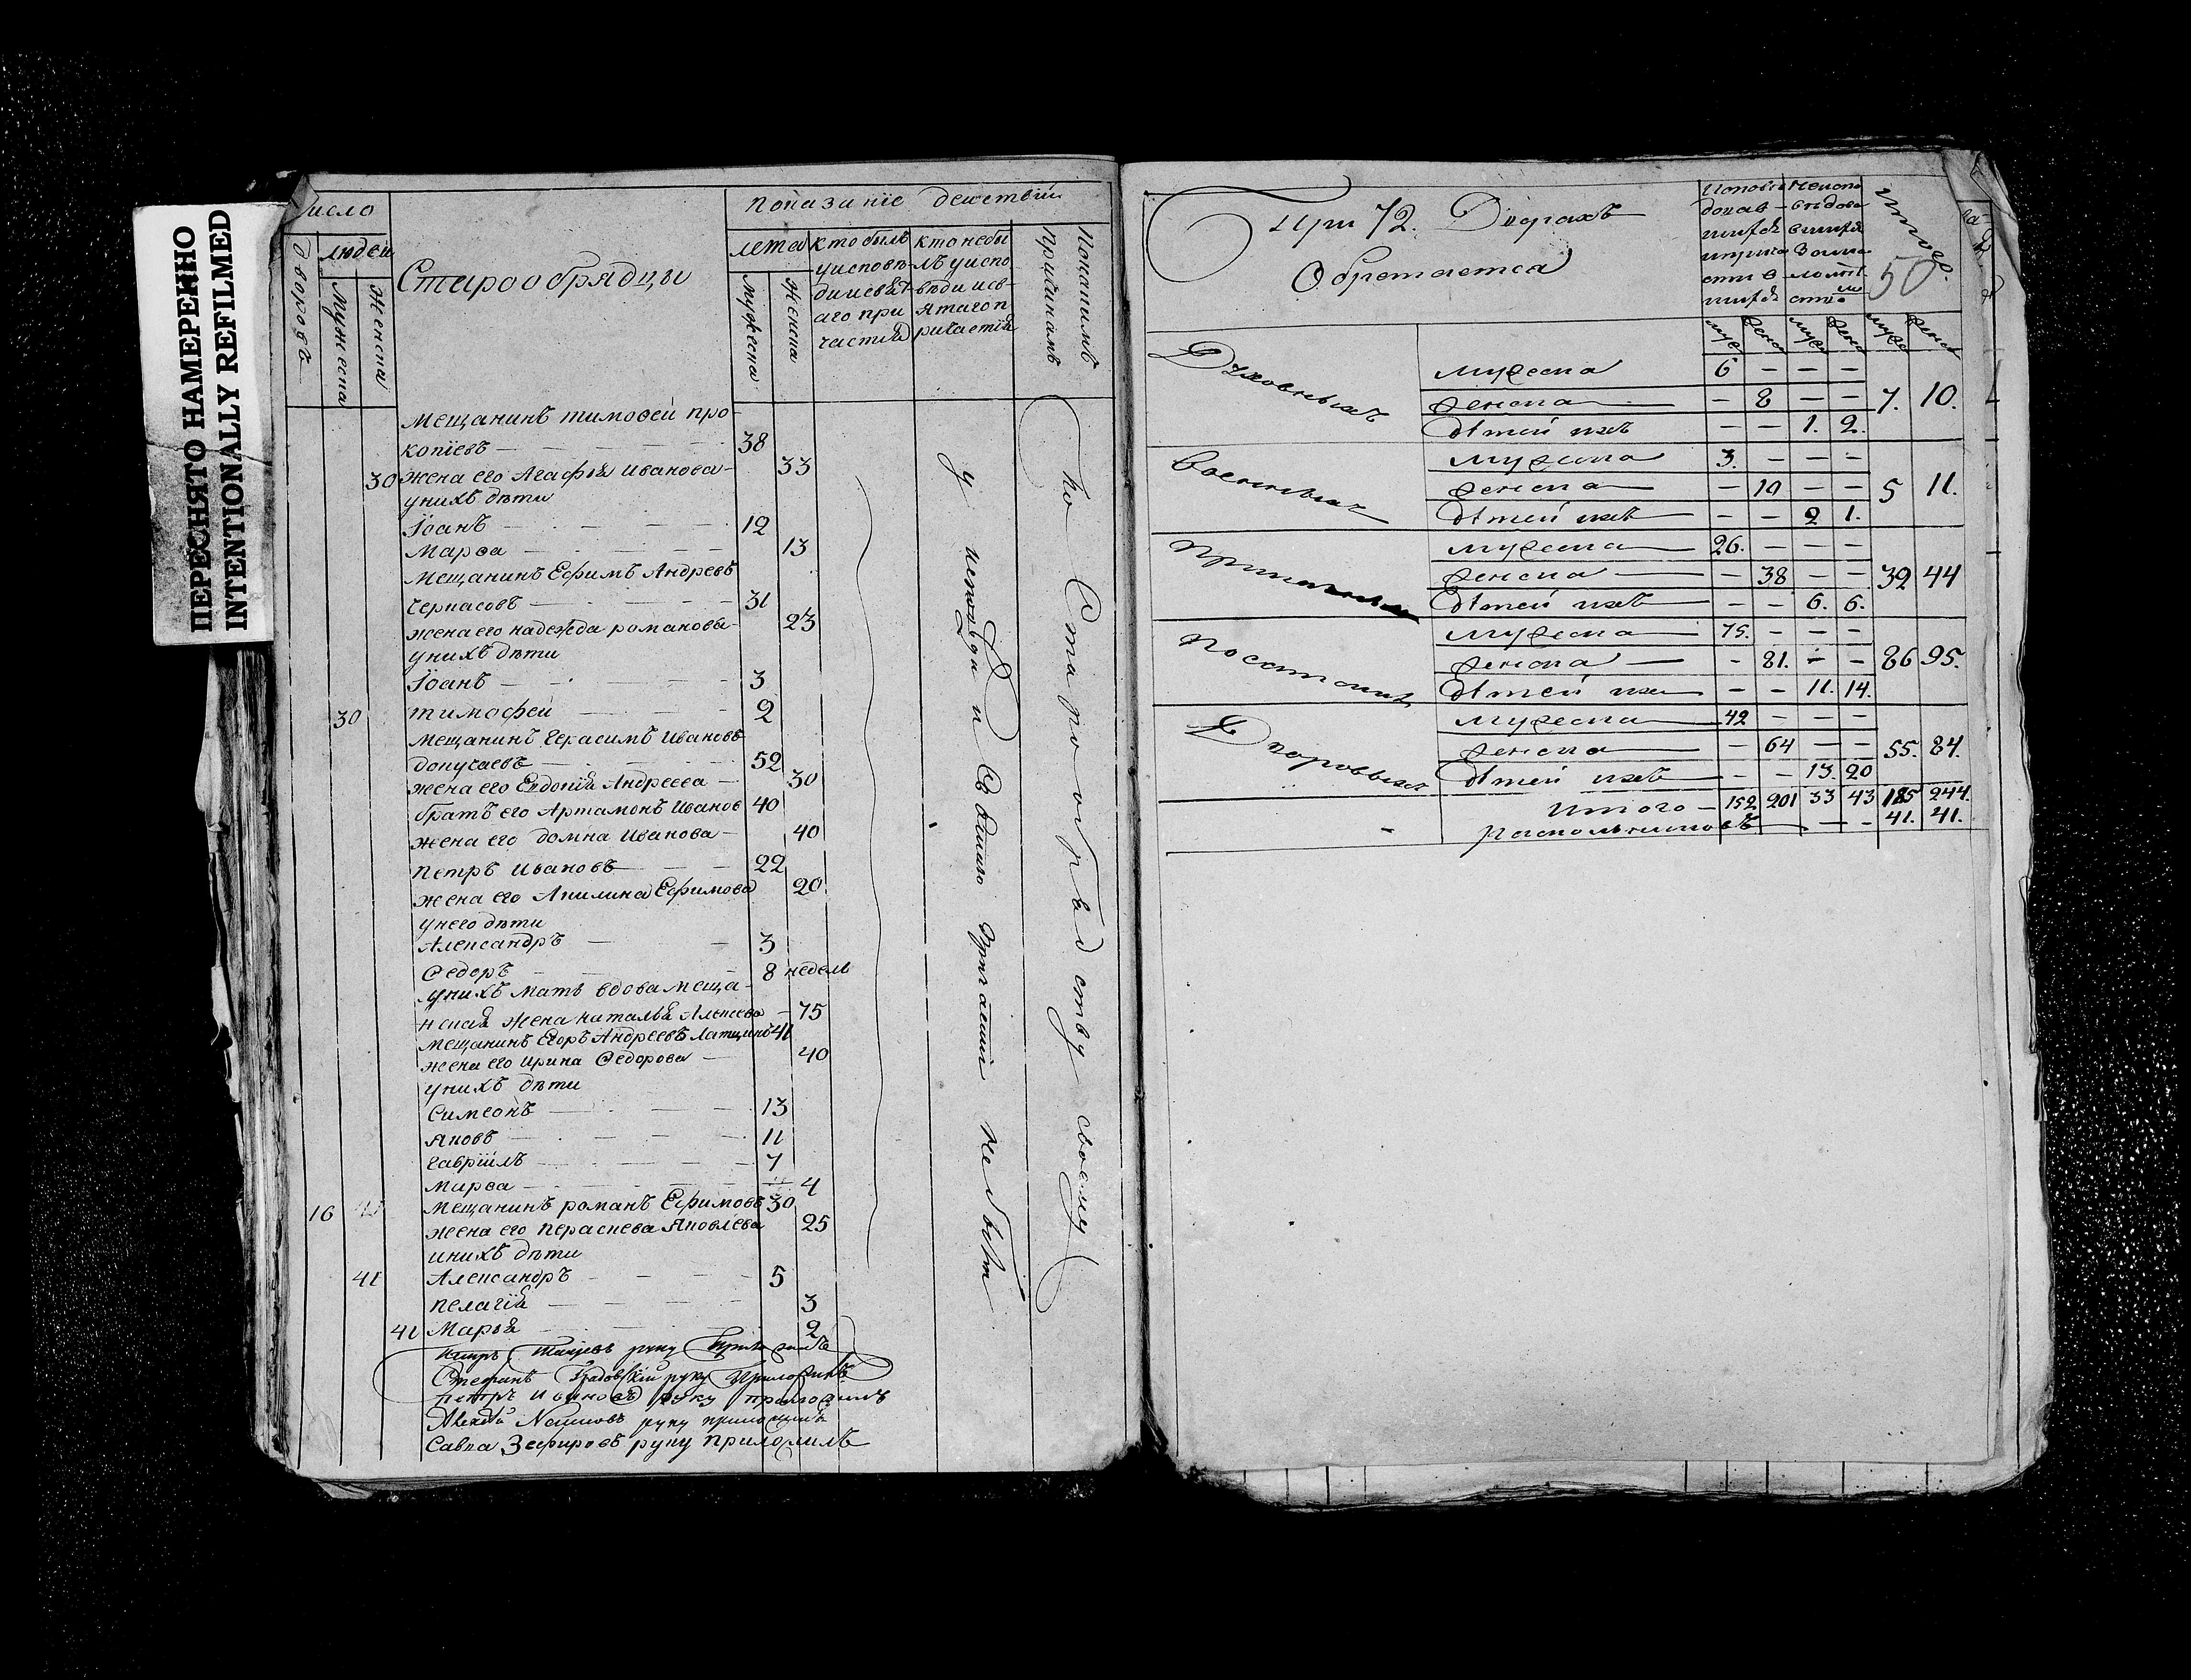 ПЕРЕСНЯТО НАМЕРЕННО
INTENTIONALLY REFILMED
Число
Дворовъ
людей
Мужеска
Женска
Старообрядцы
Показаніе действiи
лета
Мужеска
Женска
кто былъ
у исповѣ-
ди и свѧт-
аго при
частїѧ
кто небы
лъ у испо
вѣди и св-
ятаго п
ричастїѧ
Покаким
причинамъ
Мещанинъ тимоѳей про-
копїевъ 38
30 жена его Агафьѧ иванова 33
унихъ дѣти
Іоанъ 12
Марѳа 13
Мещанинъ Ефимъ Андреевъ
Черкасовъ 31
жена его надежда романова 23
унихъ дѣти
Іоанъ 3
30 тимофей 2
Мещанинъ Герасимъ Ивановъ
52
жена его Евдокїѧ Андреева 30
братъ его Артамонъ Иванов 40
жена его домна Иванова 40
петръ Ивановъ 22
жена его Акилина Ефимова 20
унего дѣти
Александръ 3
Ѳедоръ 8 недель
унихъ мать вдова меща-
нскаѧ жена натальѧ Алексеева 75
Мещанинъ Егоръ Андреевъ 41
жена его Ирина Ѳедорова 40
унихъ дѣти
Симеонъ 13
Яковъ 11
гаврїилъ 7
Марѳа 4
16 Мещанинъ романъ Ефимовъ 30
жена его Параскева Яковлева 25
унихъ дѣти
41 Александръ 5
пелагїѧ 3
41 Марьѧ 2
у исповѣди и Св причастия не бытъ
по Старообрядству своему
Петръ руку приложилъ
Стефанъ руку Приложилъ
петръ Ивановъ руку приложилъ
Алексѣй руку приложилъ
Савва Зефировъ руку приложилъ
При 72. Дворахъ
Обретается
итого
50
муж женс муж женс муж женс
Духовныхъ
мужеска 6 — — — 7. 10.
женска — 8 — —
дѣтей ихъ — — 1. 2.
Военныхъ
мужеска 3. — — — 5 11.
женска — 10 — —
дѣтей ихъ — — 2 1.
Приказныхъ
мужеска 26. — — — 32 44
женска — 38 — —
дѣтей ихъ — — 6. 6.
Посатскихъ
мужеска 75. — — — 86 95.
женска — 81. — —
дѣтей ихъ — — 11. 14.
Дворовыхъ
мужеска 42 — — — 55. 84.
женска — 64 — —
дѣтей ихъ — — 13. 20
Итого — 152 201 33 43 185 244.
раскольниковъ 41. 41.